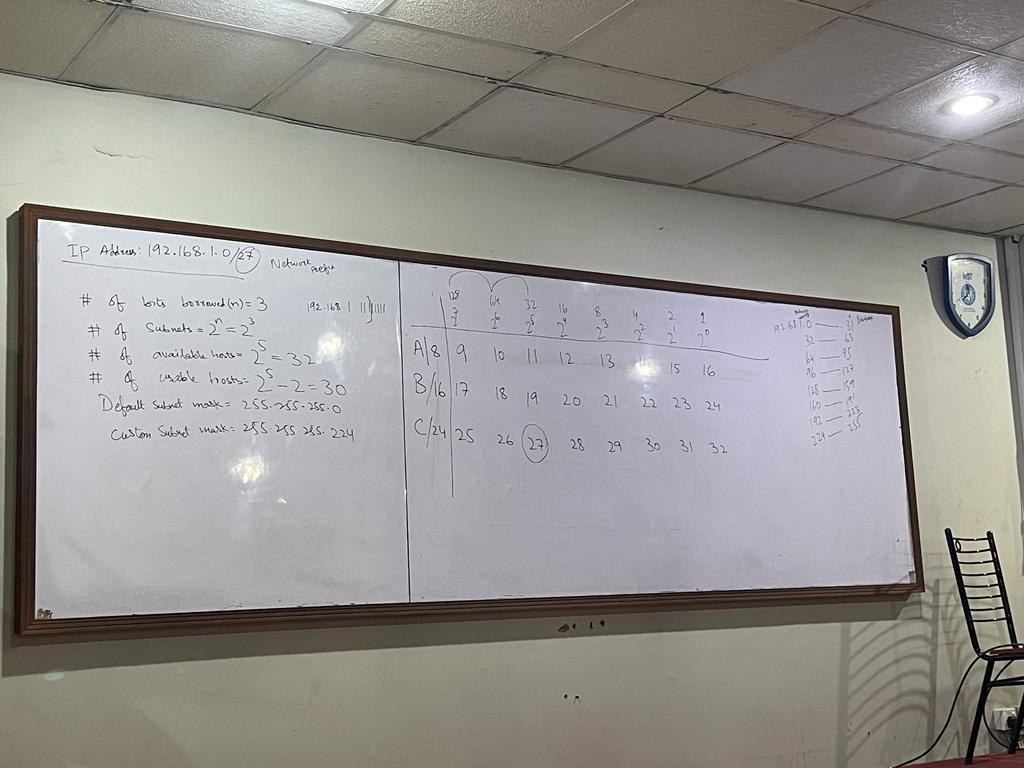 IP Address: 192.168.1.0/27
Network
Prefix
# of bits borrowed(n) = 3
192.168.1.
# of Subnets = 2^n = 2^3
# of available hosts = 2^5 = 32
# of usable hosts = 2^5 - 2 = 30
Default subnet mark = 255.255.255.0
Custom Subnet mark = 255.255.255.224
128 64 32 16 8 4 2 1
2^7 2^6 2^5 2^4 2^3 2^2 2^1 2^0
A/8 9 10 11 12 13 14 15 16
B/16 17 18 19 20 21 22 23 24
C/24 25 26 27 28 29 30 31 32
192.168.1.0 — 31
32 — 63
64 — 95
96 — 127
128 — 159
160 — 191
192 — 223
224 — 255